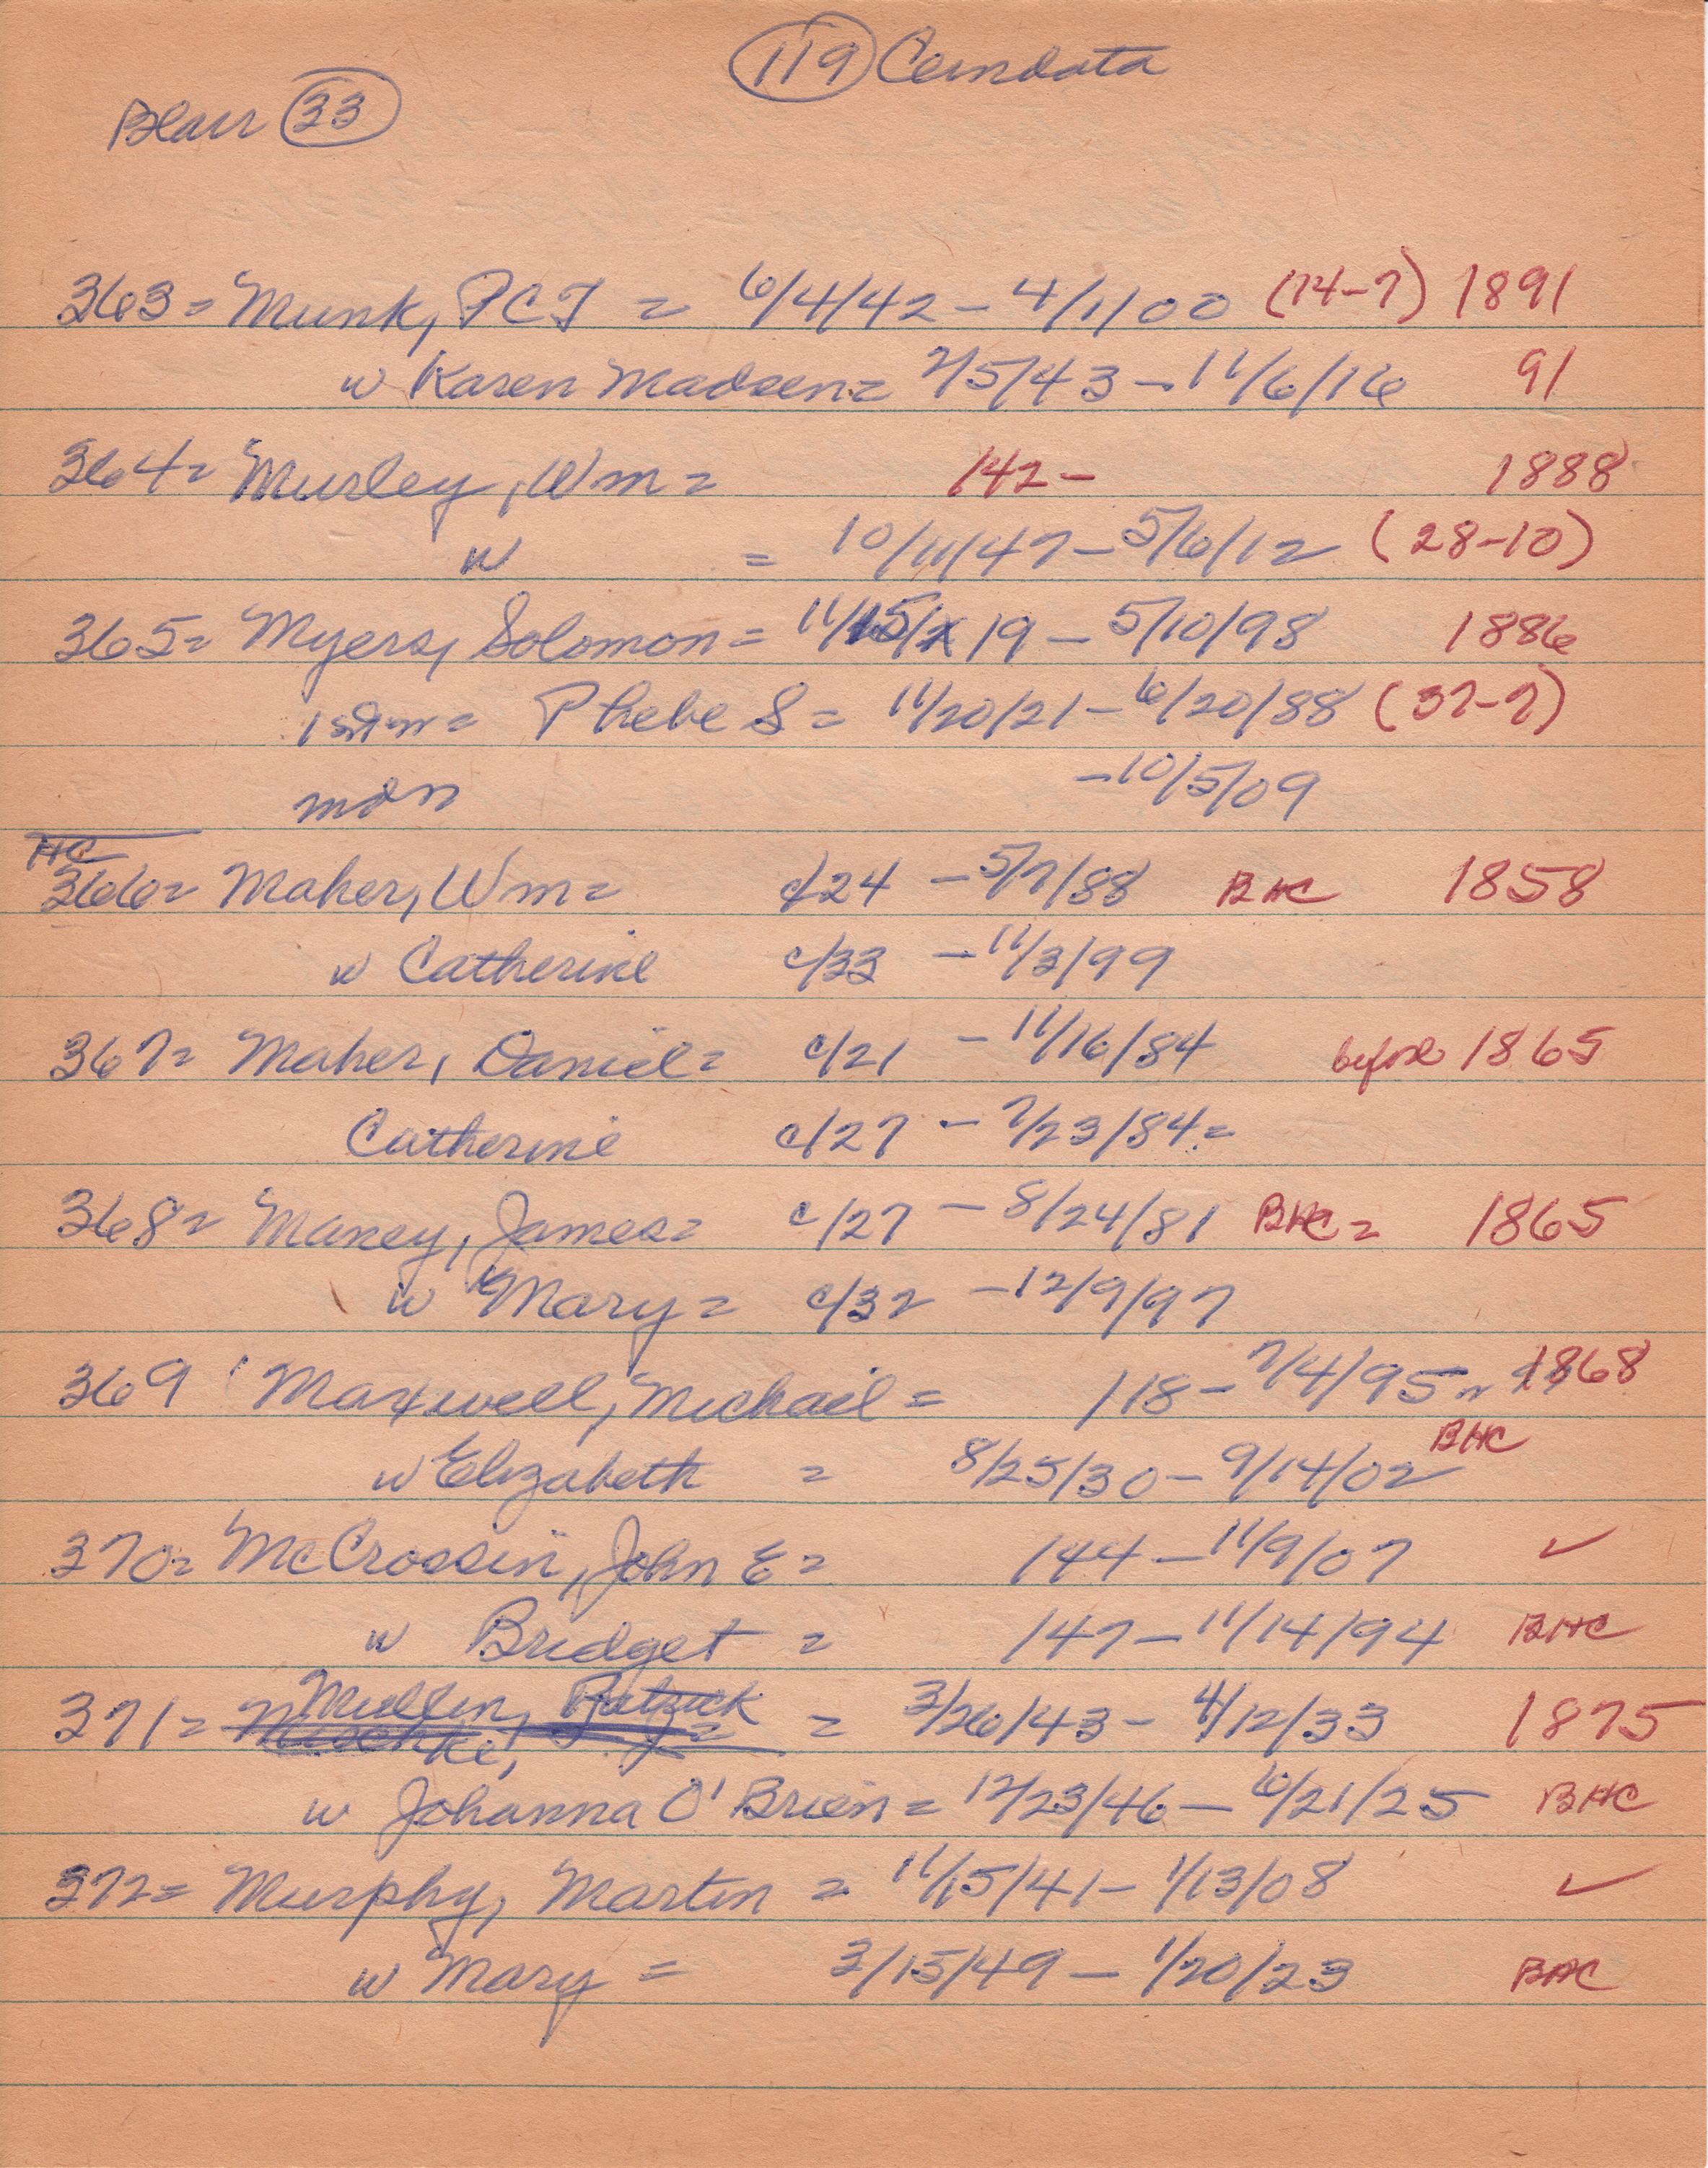 (119) Cemdata
Blair (33)
363 = Munk, PCJ = 6/4/42 - 4/1/00 (14-7) 1891
w Karen Madsen = 7/5/43 - 11/6/16 91
364 = Murley, Wm = /42 - 1888
w = 10/11/47 - 5/6/12 (28-10)
365 = Myers, Solomon = 11/15/19 - 5/10/98 1886
1st w = Phebe S = 11/20/21 - 6/20/88 (37-7)
mdn - 10/5/09
HC
366 = Maher, Wm = c/24 - 5/7/88 BHC 1858
w Catherine c/33 - 11/3/99
367 = Maher, Daniel = c/21 - 11/16/84 before 1865
Catherine c/27 - 7/23/84 =
368 = Maney, James = c/27 - 8/24/81 BHC = 1865
w Mary = c/32 - 12/9/97
369 Maxwell, Michael = /18 - 7/4/95 1868
w Elizabeth = 8/25/30 - 9/14/02 BHC
370 = McCrossin, John E = /44 - 11/9/07 ✓
w Bridget = /47 - 11/14/94 BHC
371 = Mullen, Patrick = 3/26/43 - 4/12/33 1875
w Johanna O'Brien = 12/23/46 - 6/21/25 BHC
372 = Murphy, Martin = 11/15/41 - 1/13/08 ✓
w Mary = 3/15/49 - 1/20/23 BHC